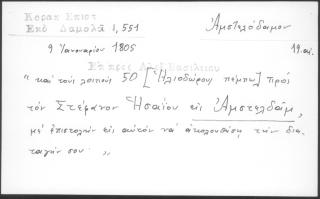 Κοραη Επιστ
Εκδ Δαμαλᾶ 1,551
Ἀμστελόδαμον
9 Ἰανουαρίου 1805
19.αι.
Ἐπ. πρὸς Ἀλέξ. Βασιλείου
"καὶ τοὺς λοιποὺς 50 [Ἡλιοδώρους πέμπω] πρὸς
τὸν Στέφανον Ἡσαΐου εἰς Ἀμστελδάμ,
μὲ ἐπιστολὴν εἰς αὐτὸν νὰ ἀκολουθήσῃ τὴν δια-
ταγήν σου "